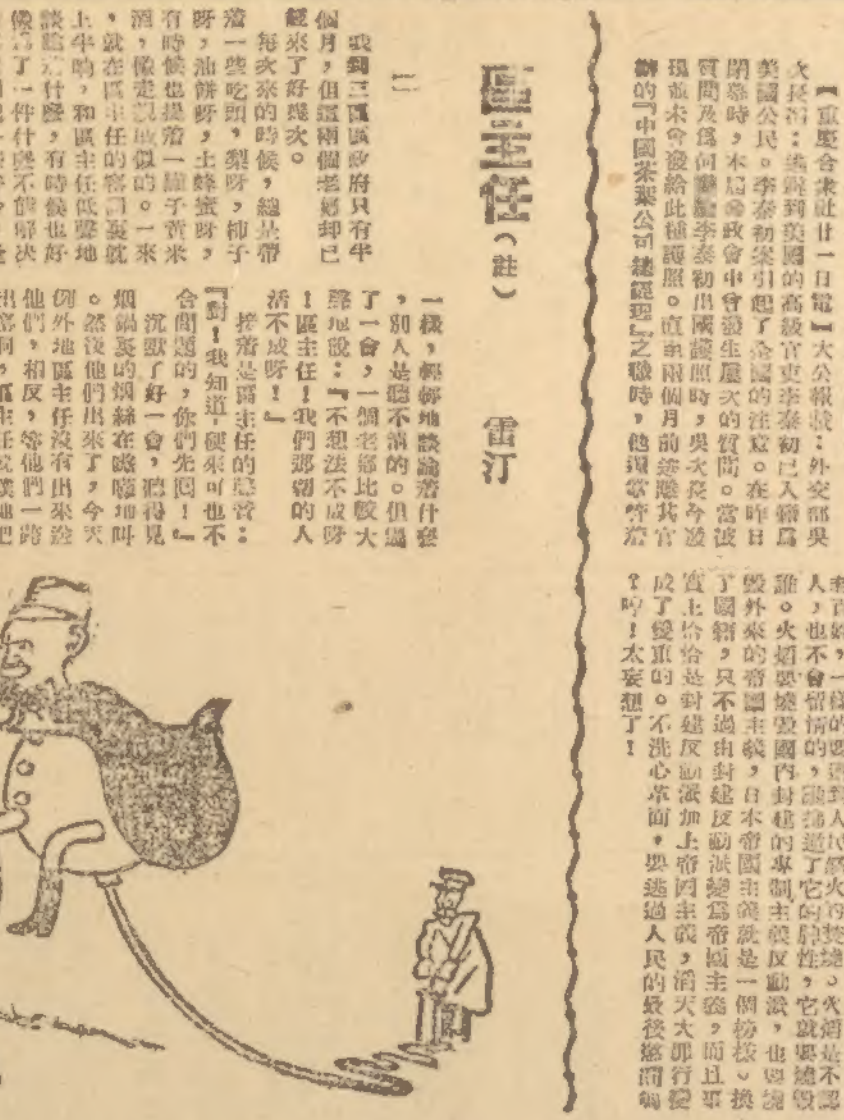 【重慶合衆社廿一日電】大公報載：外交部吳
次長稱：逃避到美國的高級官吏李泰初已入籍爲
美國公民。李泰初案引起了全國的注意。在昨日
閉幕時，本屆參政會中曾發生屢次的質問。當被
質問及爲何李泰初出國護照時，吳次長今發
現並未曾發給此種護照。直至兩個月前逃避其官
辦的『中國茶葉公司總經理』之職時，他還
老百姓，一樣的要遇到人民
人，也不會留情的，它的性，它就要燒毀
誰。火焰要燒毀國內封建的專制主義反動派，也要燒
毀外來的帝國主義，日本帝國主義就是一個榜樣。換
了國籍，只不過由封建反動派變爲帝國主義，而且事
實上恰恰是封建反動派加上帝國主義，滔天大罪行變
成了雙重的。不洗心革面，要逃過人民的最後
？哼！太妄想了！
區主任（註）
雷汀
二
我到三區區政府只有半
個月，但這兩個老鄉却已
經來了好幾次。
每次來的時候，總是帶
着一些吃頭，梨呀，柿子
呀，油餅呀，土蜂蜜呀，
有時候也提着一罐子黃米
酒，像走親戚似的。一來
，就在區主任的窰洞裏就
上半晌，和區主任低聲地
談論着什麼，有時候也好
像爲了一件什麼不能解决
一樣，輕輕地談論着什麼
，別人是聽不清的。但過
了一會，一個老鄉比較大
聲地說：『不想法不成呀
！區主任！我們那翱的人
活不成呀！』
接着是區主任的聲音：
『對！我知道，硬來可也不
合問題的，你們先回！』
沉默了好一會，聽得見
烟鍋裏的烟絲在嗞嗞地叫
。然後他們出來了，今天
例外地區主任沒有出來送
他們，相反，等他們一跨